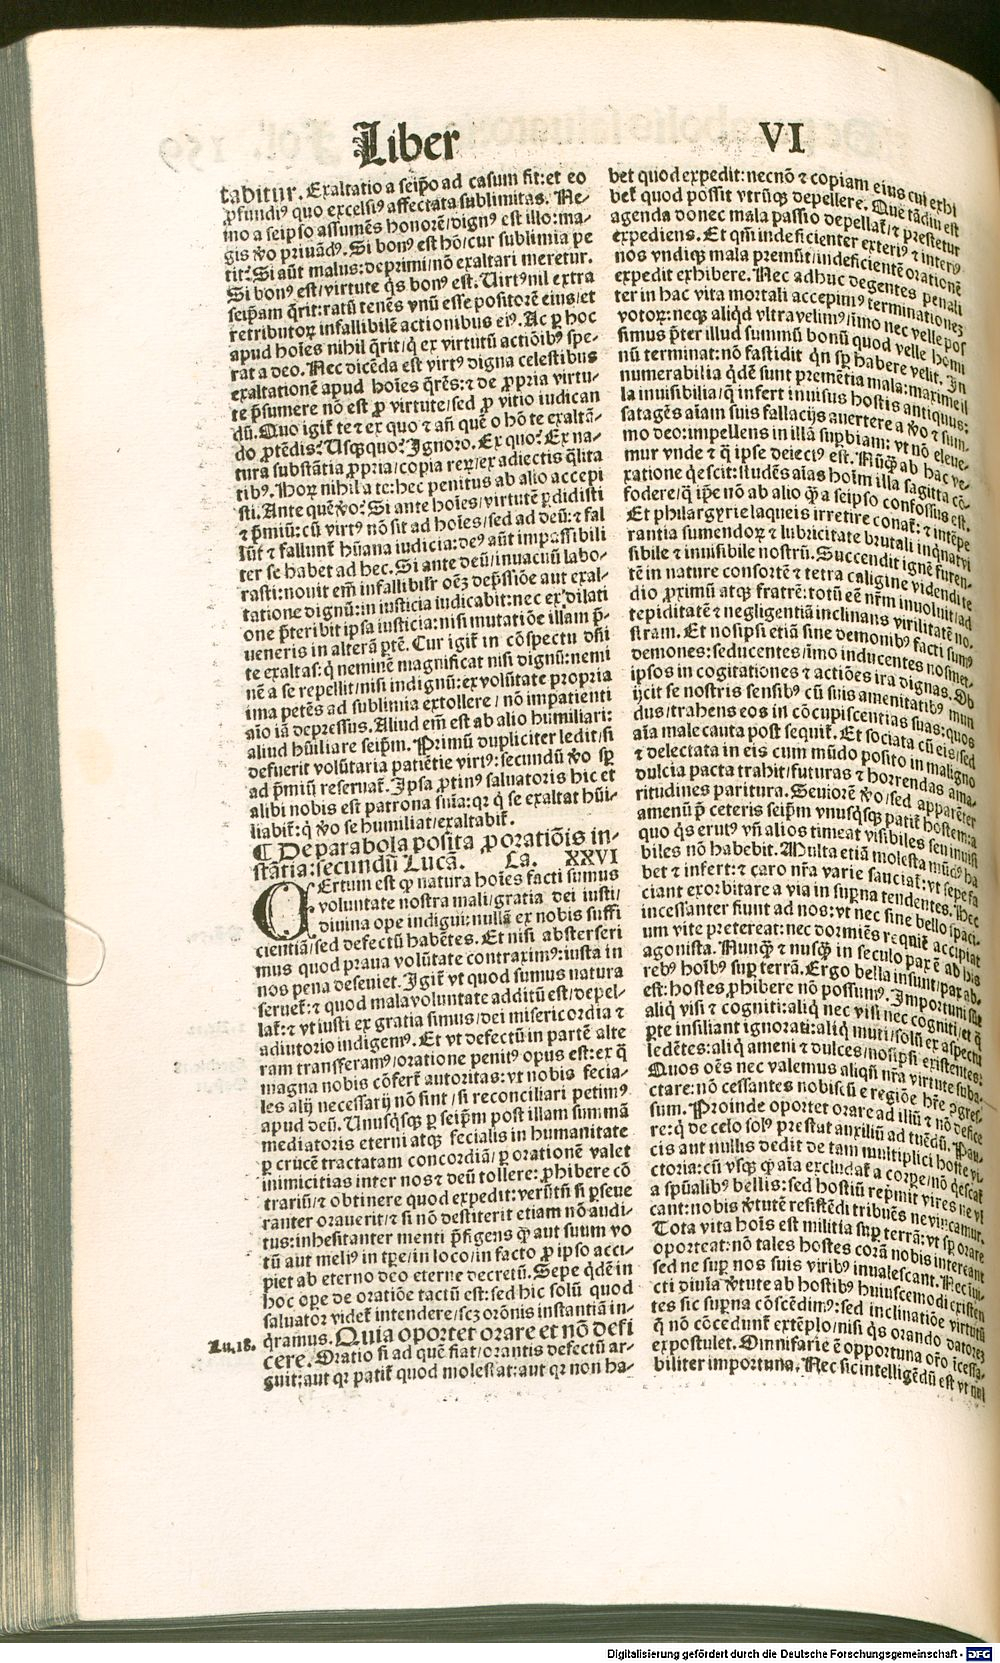 Liber
VI
tabitur. Exaltatio a seip̄o ad casum fit: et eo
ꝓfundiꝰ quo excelsiꝰ affectata sublimitas. Ne-
mo a seipso assumēs honorē/dignꝰ est illo: ma-
gis ꝟo priuādꝰ. Si bonꝰ est hō/cur sublimia pe
tit? Si aūt malus: deprimi/nō exaltari meretur.
Si bonꝰ est/virtute q̇s bonꝰ est. Uirtꝰ nil extra
seip̄am q̄rit: ratū tenēs vnū esse positorē eius/et
retributoꝝ infallibilē actionibus eiꝰ. Ac ꝑ hoc
apud hoīes nihil q̄rit/q̇ ex virtutū actiōibꝰ spe-
rat a deo. Nec dicēda est virtꝰ digna celestibus
exaltationē apud hoīes q̄rēs: ⁊ de ꝓpria virtu-
te p̄sumere nō est ꝓ virtute/sed ꝓ vitio iudican
dū. Quo igit̄ te ⁊ ex quo ⁊ añ quē o hō te exaltā-
do ꝓtēdis? Usqꝫquo? Ignoro. Ex quo? Ex na-
tura substātia ꝓpria/copia reꝝ/ex adiectis q̄lita
tibꝰ. Hoꝝ nihil a te: hec penitus ab alio accepi
sti. Ante quē ꝟo? Si ante hoīes/virtutē ꝑdidisti
⁊ p̄miū: cū virtꝰ nō sit ad hoīes/sed ad deū: ⁊ fal
lūt ⁊ fallunt̄ hūana iudicia: deꝰ aūt impassibili
ter se habet ad hec. Si ante deū/in vacuū labo-
rasti: nouit em̄ infallibilr̄ oēꝫ dep̄ssiōe aut exal-
tatione dignū: in iusticia iudicabit: nec ex dilati
one p̄teribit ipsa iusticia: nisi mutatiōe illam p̄-
ueneris in alterā ꝑtē. Cur igit̄ in cōspectu dn̄i
te exaltas: q̇ neminē magnificat nisi dignū: nemi
nē a se repellit/nisi indignū: ex volūtate propria
ima petēs ad sublimia extollere/nō impatienti
aīo iā depressus. Aliud em̄ est ab alio humiliari:
aliud hūiliare seip̄m. Primū dupliciter ledit/si
defuerit volūtaria patiētie virtꝰ: secundū ꝟo sꝑ
ad p̄miū reseruat̄. Ipsa ꝓtinꝰ saluatoris hic et
alibi nobis est patrona suīa: qꝛ q̇ se exaltat hūi-
liabit̄: q̇ ꝟo se humiliat/exaltabit̄.
¶ De parabola posita ꝓ oratiōis in-
stātia: secundū Lucā. Ca. XXVI
CErtum est ꝙ natura hoīes facti sumus
voluntate nostra mali/gratia dei iusti/
diuina ope indigui: nullā ex nobis suffi
cientiā/sed defectū habētes. Et nisi absterseri
mus quod praua volūtate contraximꝰ: iusta in
nos pena deseuiet. Igit̄ vt quod sumus natura
seruet̄: ⁊ quod mala voluntate additū est/depel-
lat̄: ⁊ vt iusti ex gratia simus/dei misericordia ⁊
adiutorio indigemꝰ. Et vt defectū in partē alte
ram transferamꝰ/oratione penitꝰ opus est: ex q̄
magna nobis cōfert̄ autoritas: vt nobis fecia-
les alij necessarij nō sint/si reconciliari petimꝰ
apud deū. Unusq̇sqꝫ ꝑ seip̄m post illam summā
mediatoris eterni atqꝫ fecialis in humanitate
ꝑ crucē tractatam concordiā/ꝑ orationē valet
inimicitias inter nos ⁊ deū tollere: ꝓhibere cō
trariū/⁊ obtinere quod expedit: verūtn̄ si ꝑseue
ranter orauerit/⁊ si nō destiterit etiam nō audi-
tus: inhesitanter menti p̄figens ꝙ aut suum vo
tū aut meliꝰ in tp̄e/in loco/in facto ꝓ ipso acci-
piet ab eterno deo eterne decretū. Sepe q̇dē in
hoc oꝑe de oratiōe tactū est: sed hic solū quod
saluator videt̄ intendere/scꝫ orōnis instantiā in-
q̇ramus. Quia oportet orare et nō defi
cere. Oratio si ad quē fiat/orantis defectū ar-
guit: aut qꝛ patit̄ quod molestat: aut qꝛ non ha-
Lu.18.
bet quod expedit: necnō ⁊ copiam eius cui exhi
bet̄ quod possit vtrūqꝫ depellere. Que tādiu est
agenda donec mala passio depellat̄/⁊ prestetur
expediens. Et qm̄ indeficienter exteriꝰ ⁊ interꝰ
nos vndiqꝫ mala premūt/indeficientē orationē
expedit exhibere. Nec adhuc degentes penali
ter in hac vita mortali accepimꝰ terminationeꝫ
votoꝝ: neqꝫ aliqd vltra velimꝰ/īmo nec velle pos
simus p̄ter illud summū bonū quod velle homi
nū terminat: nō fastidit qn̄ sꝑ habere velit. In
numerabilia q̇dē sunt prementia mala: maxime il
la inuisibilia/q̄ infert inuisus hostis antiquus:
satagēs aīam suis fallacijs auertere a ꝟo ⁊ sum-
mo deo: impellens in illā suꝑbiam: vt nō eleue-
mur vnde ⁊ q̄ ipse deiectꝰ est. Nūq̄ꝫ ab hac ve-
xatione q̇escit: studēs aīas hoīm illa sagitta cō-
fodere/q̄ ip̄e nō ab alio q̄ꝫ a seipso confossus est.
Et philargyrie laqueis irretire conat̄: ⁊ intēpe
rantia sumendoꝝ ⁊ lubricitate brutali inq̇nat vi
sibile ⁊ inuisibile nostrū. Succendit ignē furen-
tē in nature consortē ⁊ tetra caligine videndi te
dio ꝓximū atqꝫ fratrē: totū eē nr̄m inuoluit/ad
tepiditatē ⁊ negligentiā inclinans virilitatē no-
stram. Et nosipsi etiā sine demonibꝰ facti sumꝰ
demones: seducentes/īmo inducentes nosmet-
ipsos in cogitationes ⁊ actiōes ira dignas. Ob
ijcit se nostris sensibꝰ cū suis amenitatibꝰ mun
dus/trahens eos in cōcupiscentias suas: quos
aīa male cauta post sequit̄. Et sociata cū eis/sed
⁊ delectata in eis cum mūdo posito in maligno
dulcia pacta trahit/futuras ⁊ horrendas ama-
ritudines paritura. Seuiorē ꝟo/sed apparēter
amenū p̄ ceteris seip̄m vnusq̇sqꝫ patit̄ hostem: a
quo q̇s erutꝰ vn̄ alios timeat visibiles seu inuisi
biles nō habebit. Multa etiā molesta mūdꝰ ha
bet ⁊ infert: ⁊ caro nr̄a varie sauciat̄: vt sepe fa
ciant exorbitare a via in suꝑna tendentes. Hec
incessanter fiunt ad nos: vt nec sine bello spaci-
um vite pretereat: nec dormiēs requiē accipiat
agonista. Nunq̄ꝫ ⁊ nusq̄ꝫ in seculo pax ē ab his
rebꝰ hoībꝰ suꝑ terrā. Ergo bella insunt/pax ab-
est: hostes ꝓhibere nō possumꝰ. Importuni sūt
aliq̇ visi ⁊ cogniti: aliq̇ nec visi nec cogniti/et q̇
ꝑte insiliant ignorati: aliq̇ muti/solū ex aspectu
ledētes: aliq̇ ameni ⁊ dulces/nosipsi existentes:
Quos oēs nec valemus aliqn̄ nr̄a virtute suba-
ctare: nō cessantes nobiscū e regiōe hr̄e ↄgres-
sum. Proinde oportet orare ad illū ⁊ nō defice
re: q̇ de celo solꝰ prestat auxiliū ad tuēdū. Pau-
cis aut nullus dedit de tam multiplici hoste vi-
ctoria: cū vsqꝫ q̄ꝫ aīa excludat̄ a corpe/nō q̇escat
a spūalibꝰ bellis: sed hostiū rep̄mit vires ne vi
cant: nobis ꝟtutē resistēdi tribuēs ne vincamur.
Tota vita hoīs est militia suꝑ terrā: vt sꝑ orare
oporteat: nō tales hostes corā nobis intereant
sed ne suꝑ nos suis viribꝰ inualescant. Nec in-
cti diuīa ꝟtute ab hostibꝰ huiuscemodi existen
tes sic suꝑna cōscēdimꝰ: sed inclinatiōe virtutū
q̄ nō cōcedunt̄ extēplo/nisi q̇s orando datoreꝫ
expostulet. Omnifarie ē opportuna or̄o īcessa-
biliter importuna. Nec sic intelligēdū est vt nul
Digitalisierung gefördert durch die Deutsche Forschungsgemeinschaft - DFG